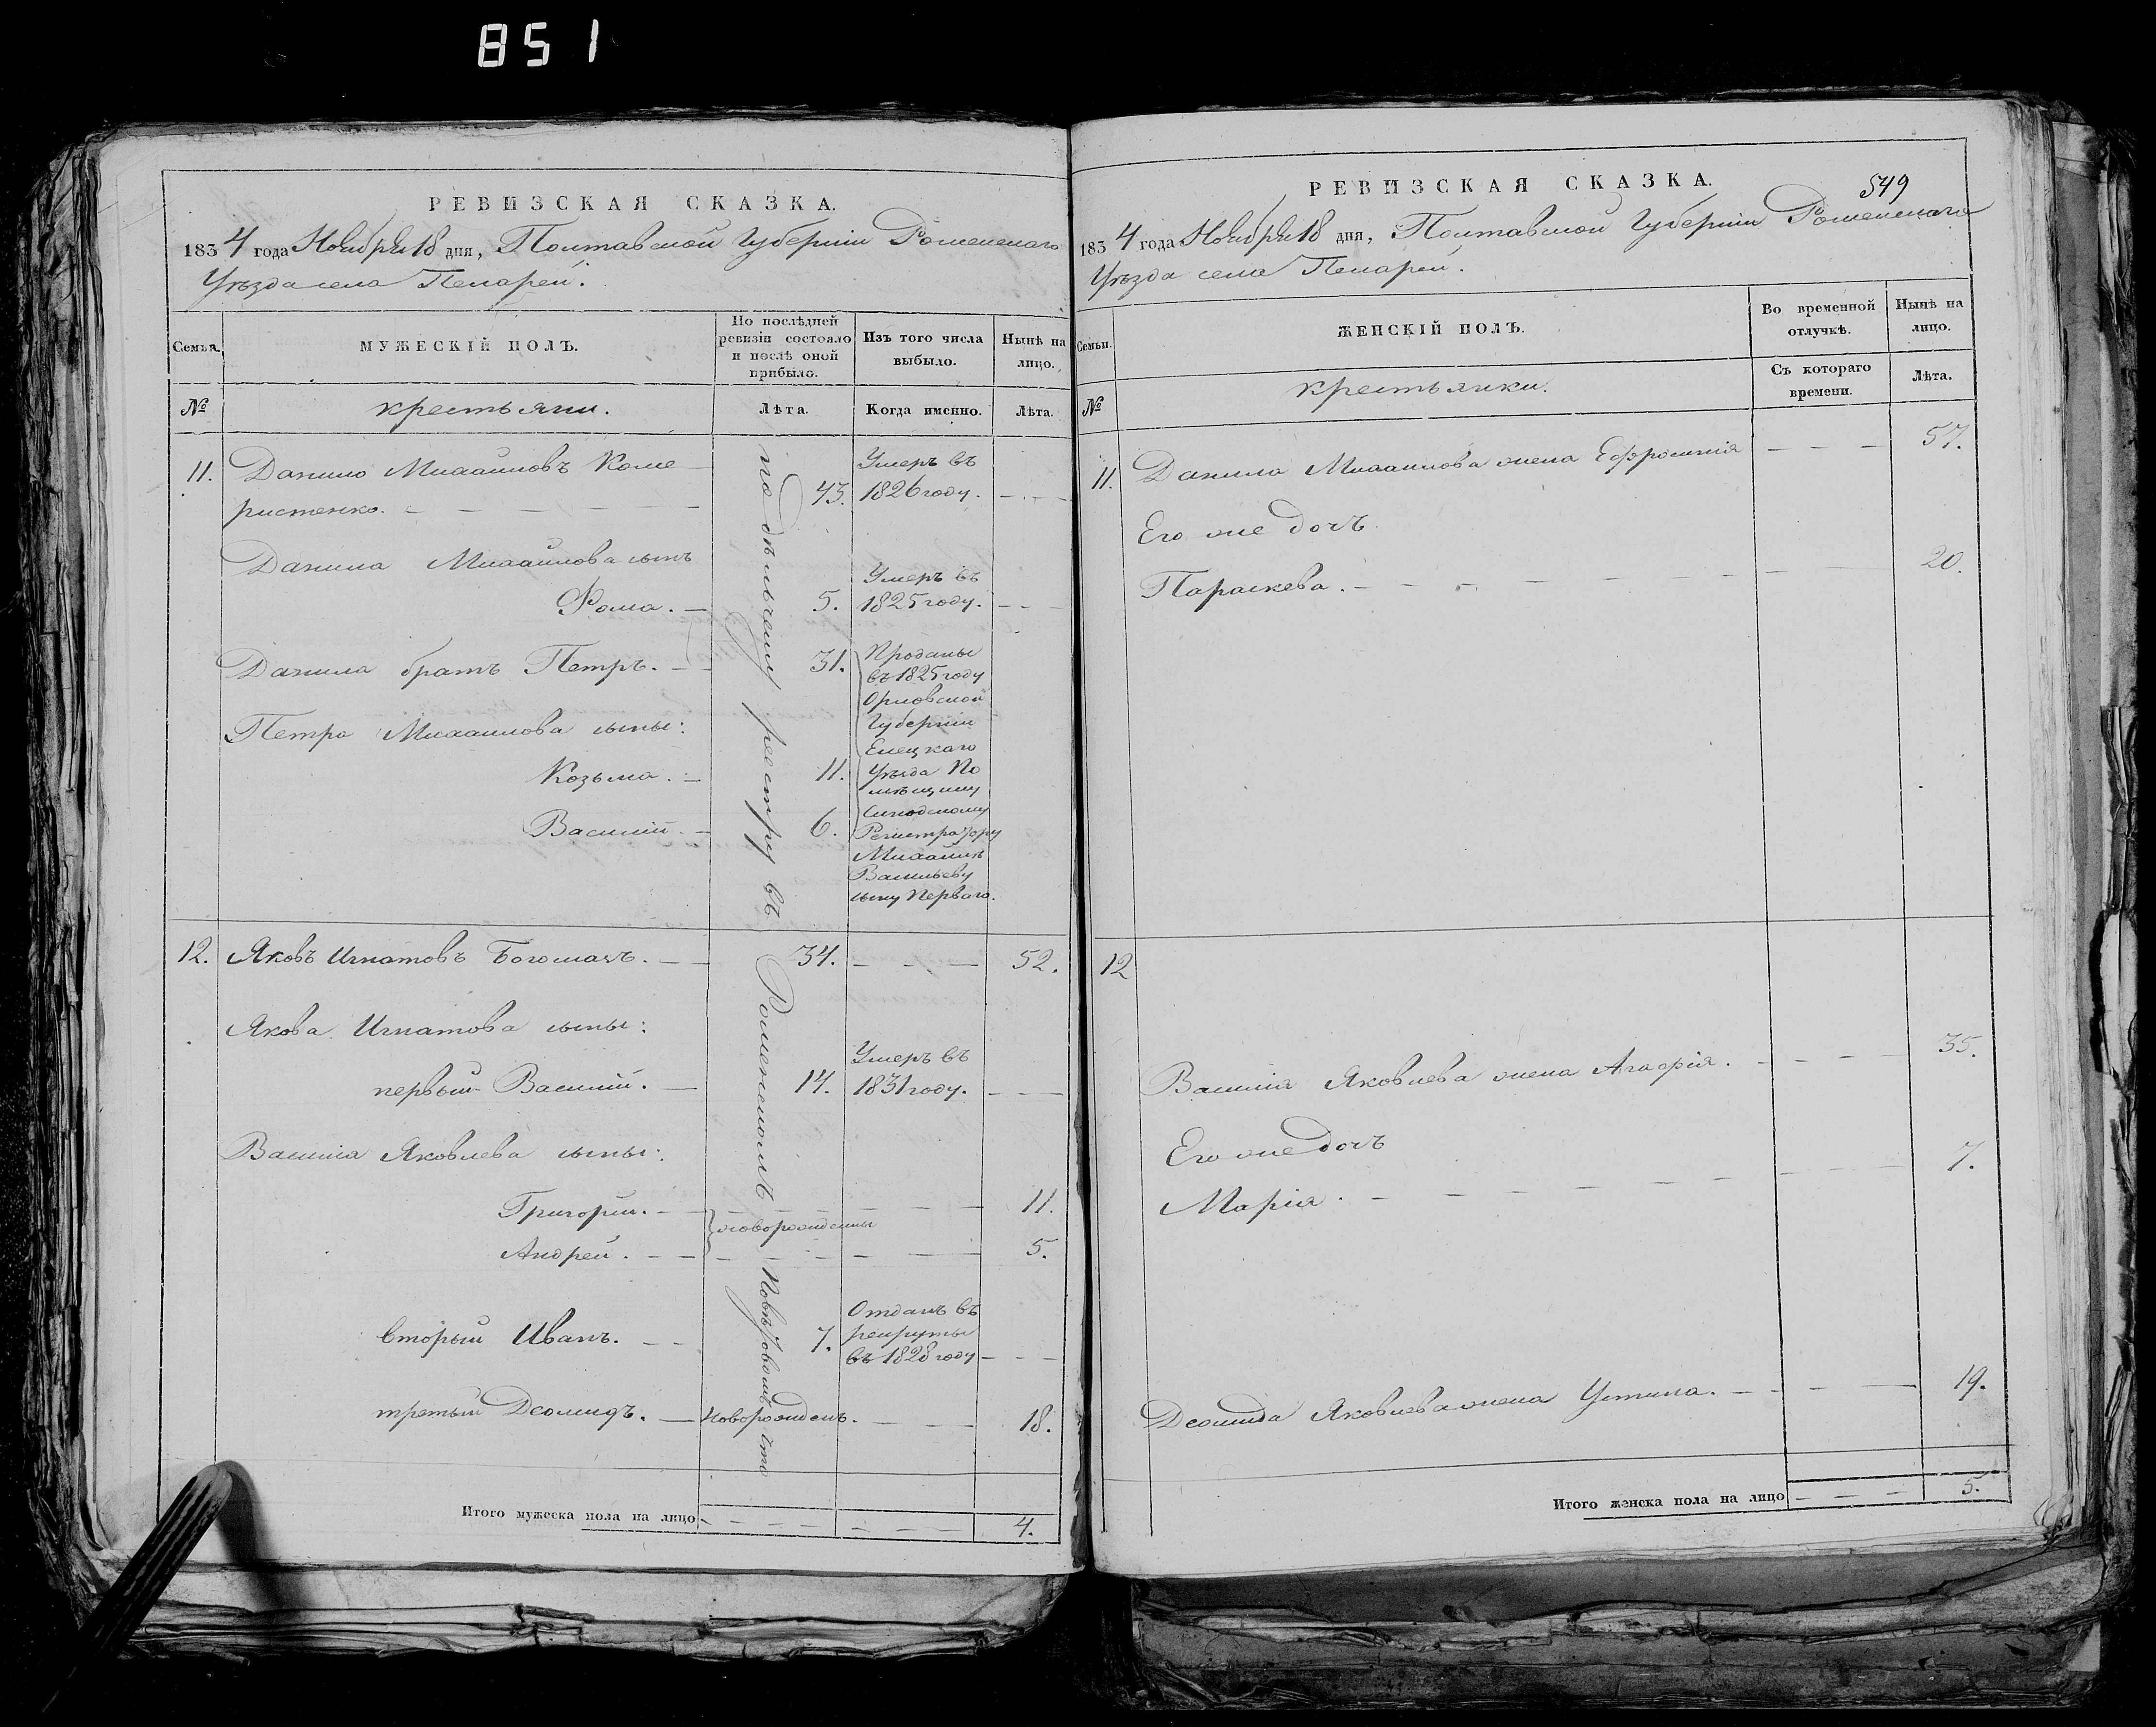 851
РЕВИЗСКАЯ СКАЗКА.
1834 года Ноября 18 дня, Полтавской Губерніи Роменскаго
Уѣзда села Пекарей.
Семьи.
МУЖЕСКІЙ ПОЛЪ.
По послѣдней ревизіи состояло и послѣ оной прибыло.
Изъ того числа выбыло.
Нынѣ на лицо.
№
крестьяни.
Лѣта.
Когда именно.
Лѣта.
по дѣльчему реестру въ Роменскомъ
11. Данило Михайловъ
43. Умеръ въ 1826 году. - - -
Данила Михайлова сынъ
Фома. - 5. Умеръ въ 1825 году. - -
Данила братъ Петръ. - - 31.
Петра Михайлова сыны:
Козьма. - 11.
Василій. - 6.
Проданы
въ 1825 году
Орловской
Губерніи
Елецкаго
Уѣзда По
мѣщику
Синодскому
Регистратору
Михайлѣ
Васильеву
сыну Перваго.
12. Яковъ Игнатовъ Богомазъ. - 34. - - - 52.
Якова Игнатова сыны:
первый Василій. - 14. Умеръ въ 1831 году. - - -
Василія Яковлева сыны:
Григорій. - - - - - 11.
новорождены
Андрей. - - - - - 5.
вторый Иванъ. - - 7. Отданъ въ
рекруты
въ 1828 году - - -
третый Деомидъ. - новорожденъ. - - - 18.
Итого мужеска пола на лицо - - - - - - - 4.
РЕВИЗСКАЯ СКАЗКА.
549
1834 года Ноября 18 дня, Полтавской Губерніи Роменскаго
Уѣзда села Пекарей.
Семьи.
ЖЕНСКІЙ ПОЛЪ.
Во временной отлучкѣ.
Нынѣ на лицо.
№
крестьянки.
Съ котораго времени.
Лѣта.
11. Данила Михайлова жена Ефросинія - - - 57.
Его же дочъ
Параскева. - - - - - - - 20.
12
Василія Яковлева жена Агафія. - - - - 35.
Его же дочъ
Марія. - - - - - - - - 7.
Деомида Яковлева жена Устина. - - - - 19.
Итого женска пола на лицо - - - 5.